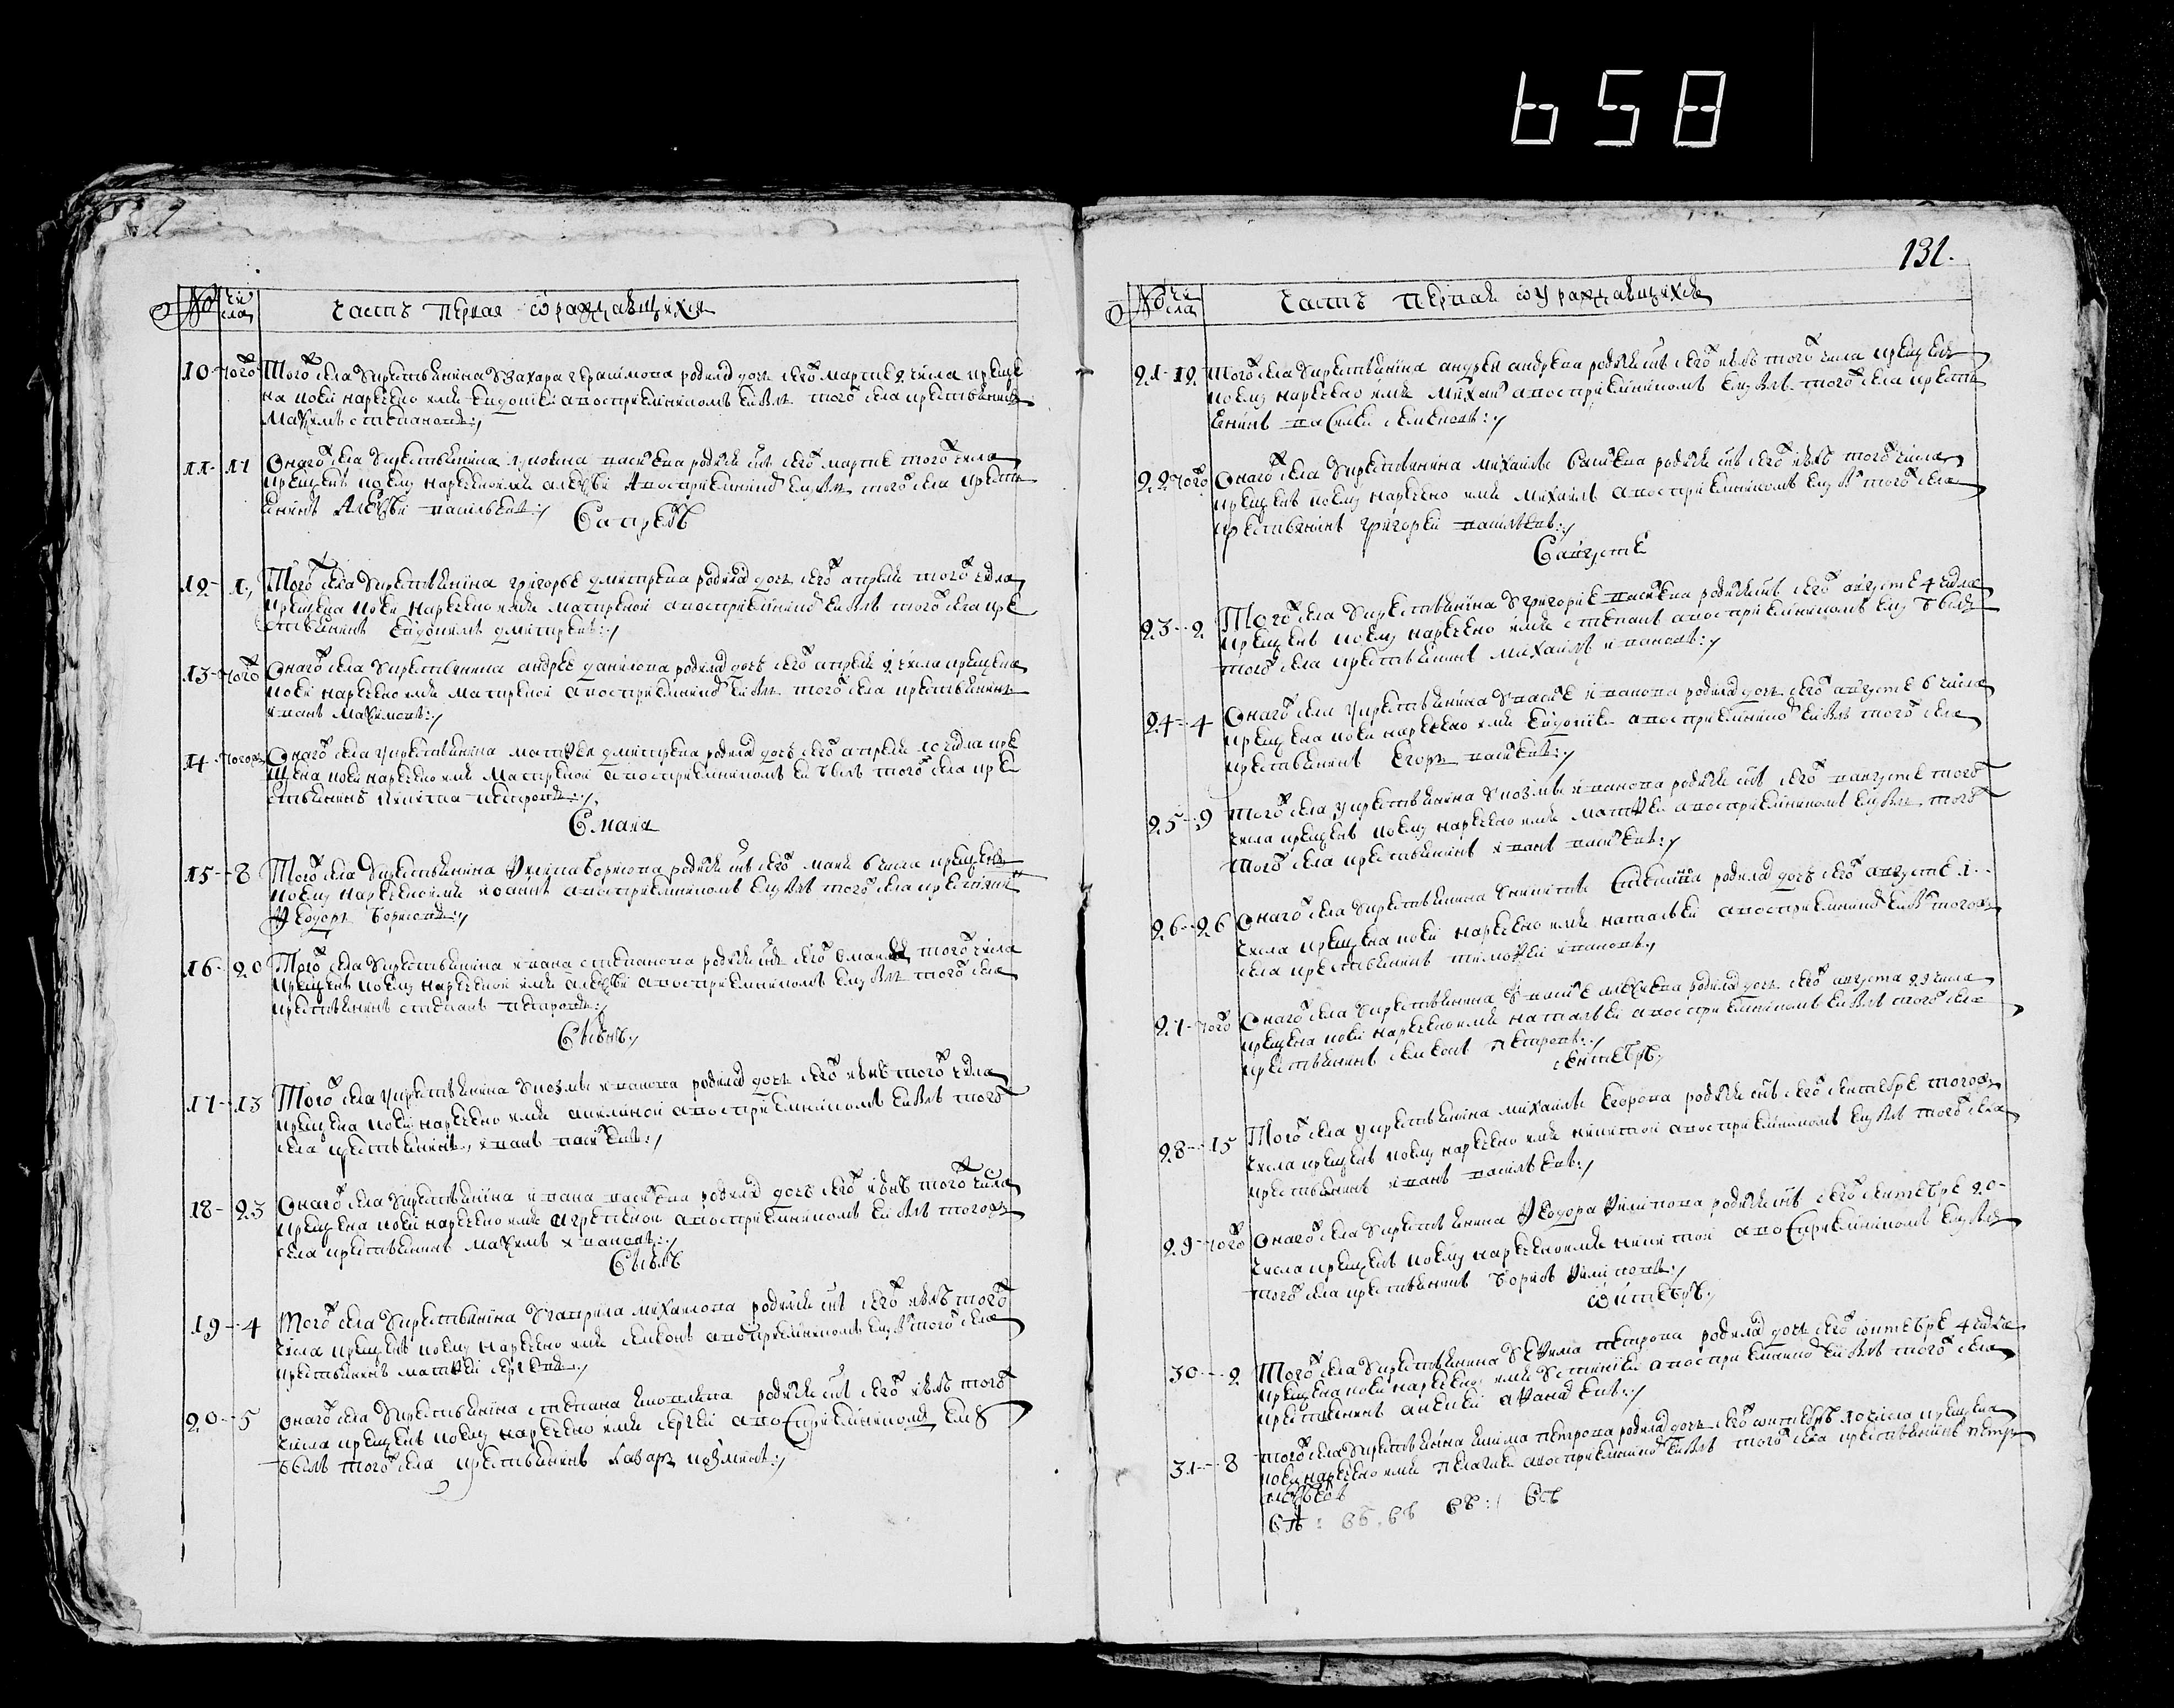 658
131.
№ чи сла Часть первая о раждавшихся
10 того Того села у крестьянина у Захара Герасимова родилась дочь сего марта 2 числа креще
на и ей наречено имя Евдокией а восприемником ей был того села крестьянин
Максим Степанов
11 11 Онаго села у крестьянина васильева родился сын сего марта того числа
крещен и ему наречено имя алексей а восприемником ему был того села кресть
енин Алексей васильев
в апреле
12 1 Того села у крестьянина григорье дмитриева родилась дочь сего апреля того числа
крещена и ей наречено имя матреной а восприемником ей был того села кре
стьенин Евдоким дмитриев
13 того Онаго села у крестьянина андрея данилова родилась дочь сего апреля 2 числа крещена
и ей наречено имя матреной а восприемником ей был того села крестьянин
иван Максимов
14 того Онаго села у крестьянина матвея дмитриева родилась дочь сего апреля 10 числа кре
щена и ей наречено имя матреной а восприемником ей был того села кре
стьенин никита петров
в маия
15 8 Того села у крестьянина филипа борисова родился сын сего маия 6 числа крещен
и ему наречено имя иоанн а восприемником ему был того села крестьянин
Федор борисов
16 20 Того села у крестьянина ивана степанова родился сын сего в маия того числа
крещен и ему наречено имя алексей а восприемником ему был того села
крестьянин степан петров
в июне
17 13 Того села у крестьянина у козмы иванова родилась дочь сего июня того числа
крещена и ей наречено имя акилиной а восприемником ей был того
села крестьянин иван васильев
18 23 Онаго села у крестьянина ивана васильева родилась дочь сего июня того числа
крещена и ей наречено имя агрепеной а восприемником ей был того
села крестьянин максим иванов
в июле
19 4 Того села у крестьянина у гаврила михайлова родился сын сего июля того
числа крещен и ему наречено имя семион а восприемником ему был того села
крестьянин матвей сергеев
20 5 Онаго села у крестьянина степана родился сын сего июля того
числа крещен и ему наречено имя сергей а восприемником ему
был того села крестьянин Лазарь козмин
№ чи сла Часть первая о у раждавшихся
21 12 Того села у крестьянина андрея андреева родился сын сего июля того числа крещен
и ему наречено имя михаил а восприемником ему был того села кресть
енин василей семенов
22 того Онаго села у крестьянина михаиле васильева родился сын сего июля того числа
крещен и ему наречено имя михаил а восприемником ему был того села
крестьянин григорей васильев
в августе
23 2 Того села у крестьянина у григорие васильева родился сын сего августе 4 числа
крещен и ему наречено имя степан а восприемником ему был
того села крестьянин михаил иванов
24 4 Онаго села у крестьянина у василе иванова родилась дочь сего августе 6 числа
крещена и ей наречено имя евдокия а восприемником ей был того села
крестьянин Егор васильев
25 9 Того села у крестьянина у козмы иванова родился сын сего в августе того
числа крещен и ему наречено имя матвей а восприемником ему был того
того села крестьянин иван васильев
26 26 Онаго села у крестьянина у никиты родилась дочь сего августе
числа крещена и ей наречено имя наталья а восприемником ей был того
села крестьянин тимофей иванов
27 того Онаго села у крестьянина у василе алексеева родилась дочь сего августа числа
крещена и ей наречено имя наталья а восприемником ей был того села
крестьянин семион петров
сентебрь
28 15 Того села у крестьянина михаиле Егорова родился сын сего сентебре того
числа крещен и ему наречено имя никитой а восприемником ему был того села
крестьянин иван васильев
29 того Онаго села у крестьянина Федора филипова родился сын сего сентебре 20
числа крещен и ему наречено имя никитой а восприемником ему был
того села крестьянин борис филипов
октебрь
30 2 Того села у крестьянина у Ефима петрова родилась дочь сего октебре 4 числа
крещена и ей наречено имя устинией а восприемником ей был того села
крестьянин
31 8 Того села у крестьянина екима петрова родилась дочь сего октебрь 10 числа крещена
и ей наречено имя пелагия а восприемником ей был того села крестьянин петр